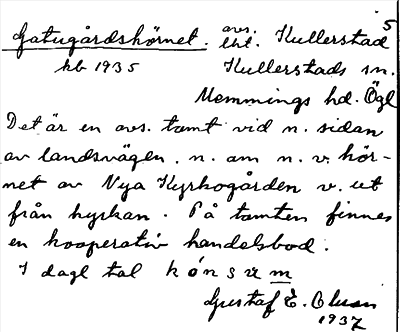 5
Gatugårdshörnet. avs. Kullerstad
lht.
kb 1935 Kullerstads sn.
Memmings hd. Ögl
Det är en avs. tomt vid n. sidan
av landsvägen. n. am n. v. hör-
net av Nya Kyrkogården v. ut
från kyrkan. På tomten finnes
en kooperativ handelsbod.
I dagl tal kónsum
Gustaf E. Olsson
1937